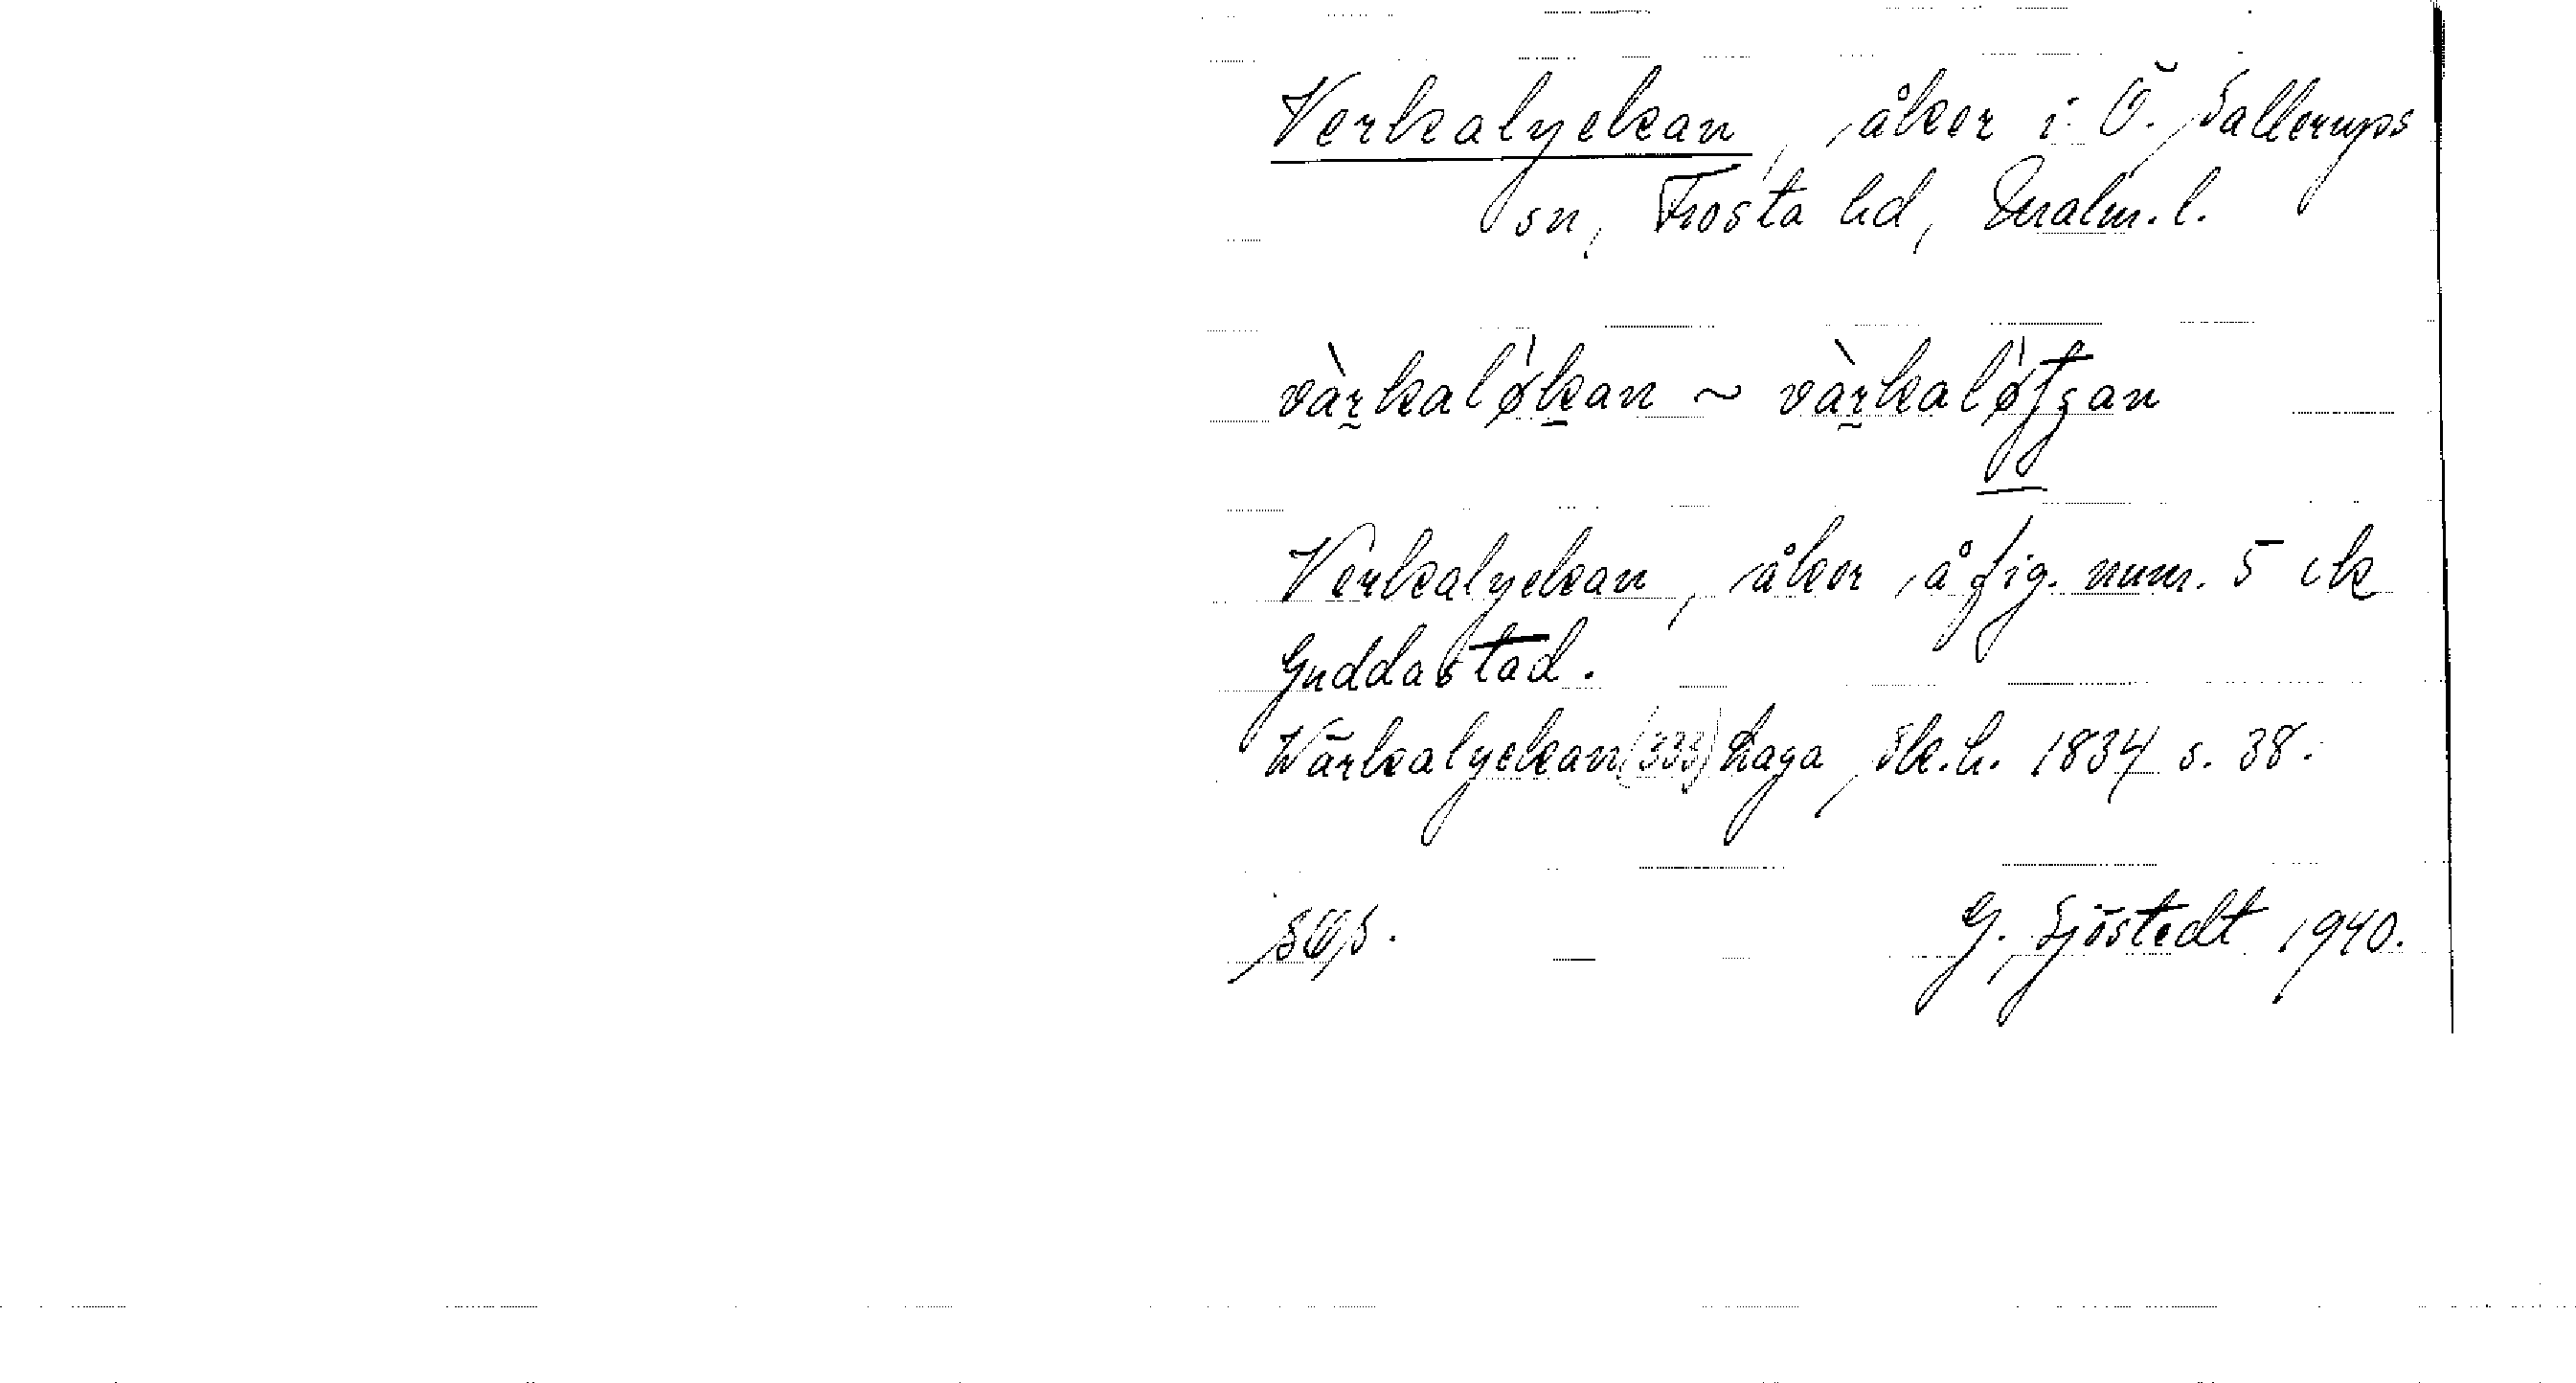 Verkalyckan, åker i Ö. Sallerups
sn, Frosta hd, Malm. l.
vàrkalø̀kan ~ vàrkalø̀tʒan
Verkalyckan, åker å fig. num. 5 ck
Guddastad.
Wärkalyckan (333) Haga, sk.h. 1834 s. 38.
G. Sjöstedt 1940.